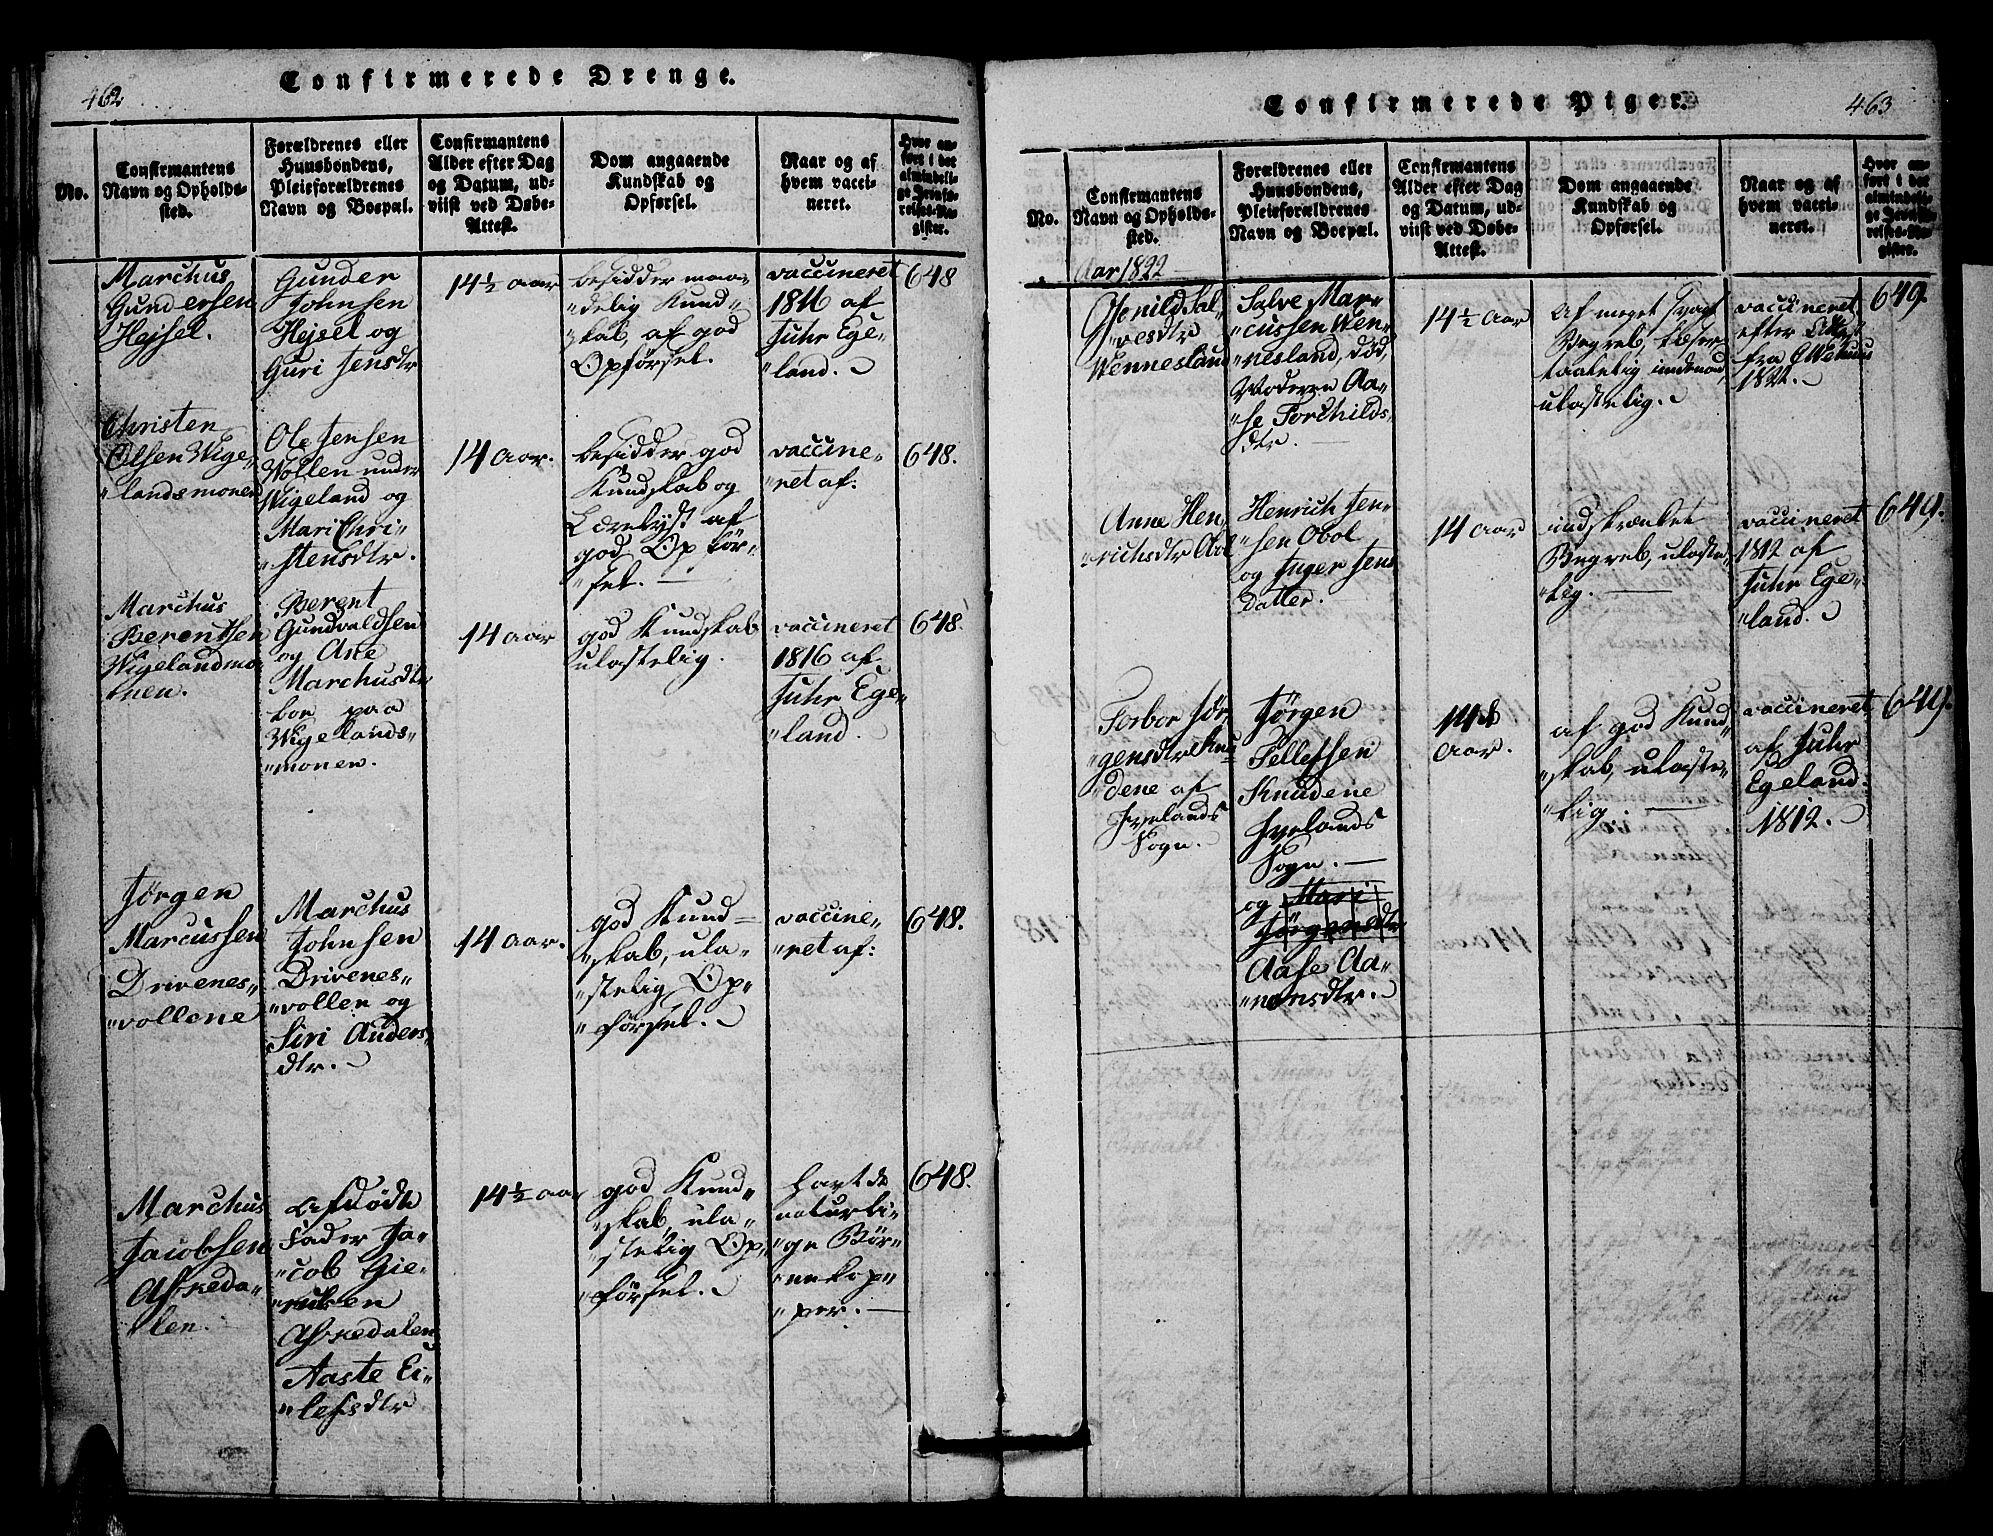 462
Confirmerede Drenge.
No.
Confirmantens
Navn og Opholds-
sted.
Forældrenes eller
Huusbondens,
Pleieforældrenes
Navn og Boepæl.
Confirmantens
Alder efter Dag
og Datum, ud-
viist ved Døbe-
Attest.
Dom angaaende
Kundskab og
Opførsel.
Naar og af
hvem vacci-
neret.
Hvor an-
ført i det
almindeli-
ge Jevnfø-
relses-Re-
gister.
Marchus
Gundersen
Hejsel.
Gunder
Johnsen
Hejsel og
Guri Jensdtr
14½ aar
besidder maa-
"delig Kund-
"skab, af god
Opførsel.
vaccineret
1816 af
Juhr Ege-
"land.
648
Christen
Olsen Wige-
"landsmonen
Ole Jensen
Wollen under
Wigeland og
Mari Chri-
"stensdtr.
14 Aar.
besidder god
Kundskab og
Lærelyst af
god Opfør-
"sel.
vaccine-
"ret af:
648.
Marchus
Berentsen
Wigelandmo-
"nen.
Berent
Gundvaldsen
og Ane
Marchusdtr
boe paa
Wigelands-
"monen.
14 aar
god Kundskab
ulastelig.
vaccineret
1816 af
Juhr Ege-
"land.
648.
Jørgen
Marcussen
Drivenes-
"vollene
Marchus
Johnsen
Drivenes-
"vollen og
Siri Anders
dtr.
14 Aar.
god Kund-
"skab, ula-
"stelig Op-
"førsel.
vaccine-
"ret af:
648.
Marchus
Jacobsen
Askeda-
"len.
Afdøde
Fader Ja-
"cob Gie-
"rulsen
Askedalen,
Aaste Ei-
"lefsdtr
14½ aar
god Kund-
"skab, ula-
"stelig Op-
"førsel.
havt de
naturli-
"ge Bør-
"nekop-
"per.
648.
Confirmerede Piger.
463
No.
Confirmantens
Navn og Opholds-
sted.
Forældrenes eller
Huusbondens,
Pleieforældrenes
Navn og Boepæl.
Confirmantens
Alder efter Dag
og Datum, ud-
viist ved Døbe-
Attest.
Dom angaaende
Kundskab og
Opførsel.
Naar og af
hvem vacci-
neret.
Hvor an-
ført i det
almindeli-
ge Jevnfø-
relses-Re-
gister.
Aar 1822
Gunild Sal-
"vesdtr
Wennesland
Salve Mar-
"cussen Wen-
"nesland, død,
Moderen Aa-
"se Torchilds
dtr.
14½ Aar
Af meget svagt
Begreb, læser
taalelig indenad,
ulastelig.
vaccineret
efter Attest
fra
1822.
649
Anne Hen-
"richsdtr Obol
Henrich Jen-
"sen Obol
og Inger Jens
Datter.
14 Aar
indskrænket
Begreb, ulaste-
"lig.
vaccineret
1812 af
Juhr Ege-
"land.
649.
Torbor Jør-
"gensdtr Knu-
"dene af
Ivelands
Sogn.
Jørgen
Tellefsen
Knudene
Ivelands
Sogn.
og Mari
Jørgensdtr
Aase Aa-
"nonsdtr.
14
Aar.
af god Kund-
"skab, ulaste-
"lig.
vaccineret
af Juhr
Egeland
1812.
649.